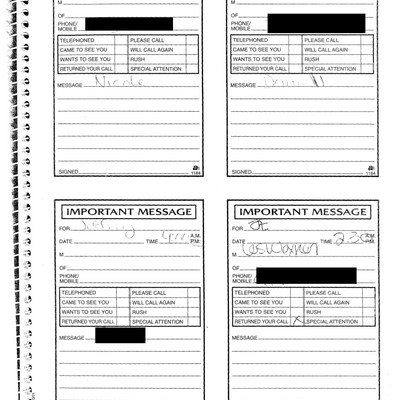 M
M
OF
OF
PHONE/
MOBILE
PHONE/
MOBILE
TELEPHONED PLEASE CALL
CAME TO SEE YOU WILL CALL AGAIN
WANTS TO SEE YOU RUSH
RETURNED YOUR CALL SPECIAL ATTENTION
TELEPHONED PLEASE CALL
CAME TO SEE YOU WILL CALL AGAIN
WANTS TO SEE YOU RUSH
RETURNED YOUR CALL SPECIAL ATTENTION
MESSAGE Nicole
MESSAGE
1184
1184
SIGNED
SIGNED
IMPORTANT MESSAGE
FOR Jeffrey
DATE TIME A.M.
P.M.
M
OF
PHONE/
MOBILE
TELEPHONED PLEASE CALL
CAME TO SEE YOU WILL CALL AGAIN
WANTS TO SEE YOU RUSH
RETURNED YOUR CALL SPECIAL ATTENTION
MESSAGE
IMPORTANT MESSAGE
FOR JE
DATE TIME 2:30 A.M.
P.M.
M Les Wexner
OF
PHONE/
MOBILE
TELEPHONED PLEASE CALL
CAME TO SEE YOU WILL CALL AGAIN
WANTS TO SEE YOU RUSH
RETURNED YOUR CALL X SPECIAL ATTENTION
MESSAGE